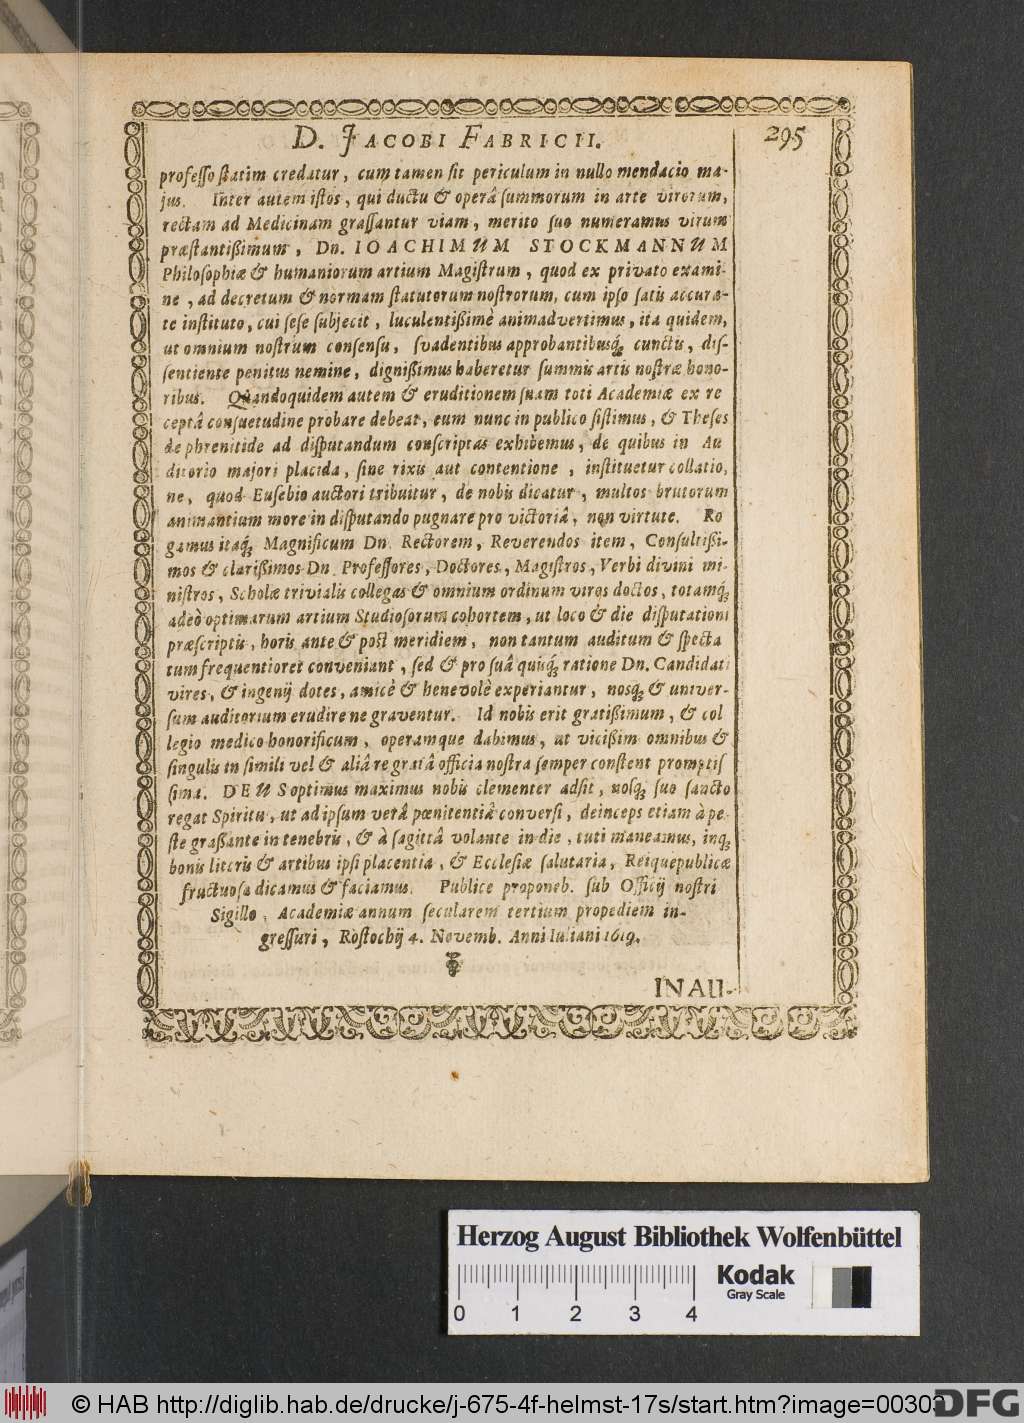 D. JACOBI FABRICII.
295
professo statim credatur, cum tamen sit periculum in nullo mendacio ma-
jus. Inter autem istos, qui ductu & operâ summorum in arte virorum,
rectam ad Medicinam grassantur viam, merito suo numeramus virum
præstantißimum, Dn. IOACHIMUM STOCKMANNUM
Philosophiæ & humaniorum artium Magistrum, quod ex privato exami-
ne, ad decretum & normam statutorum nostrorum, cum ipso satis accura-
te instituto, cui sese subjecit, luculentißimè animadvertimus, ita quidem,
ut omnium nostrum consensu, svadentibus approbantibusq; cunctis, dis-
sentiente penitus nemine, dignißimus haberetur summis artis nostræ hono-
ribus. Quandoquidem autem & eruditionem suam toti Academiæ ex re
ceptâ consuetudine probare debeat, eum nunc in publico sistimus, & Theses
de phrenitide ad disputandum conscriptas exhibemus, de quibus in Au
ditorio majori placida, sine rixis aut contentione, instituetur collatio,
ne, quod Eusebio auctori tribuitur, de nobis dicatur, multos brutorum
animantium more in disputando pugnare pro victoriâ, non virtute. Ro
gamus itaq; Magnificum Dn. Rectorem, Reverendos item, Consultißi-
mos & clarißimos Dn. Professores, Doctores, Magistros, Verbi divini mi-
nistros, Scholæ trivialis collegas & omnium ordinum viros doctos, totamq;
adeò optimarum artium Studiosorum cohortem, ut loco & die disputationi
præscriptis, horis ante & post meridiem, non tantum auditum & specta
tum frequentiores conveniant, sed & pro suâ quisq; ratione Dn. Candidati
vires, & ingenij dotes, amicè & benevolè experiantur, nosq; & univer-
sum auditorium erudire ne graventur. Id nobis erit gratißimum, & col
legio medico honorificum, operamque dabimus, ut vicißim omnibus &
singulis in simili vel & aliâ re gratâ officia nostra semper constent promptis
sima. DEUS optimus maximus nobis clementer adsit, nosq; suo sancto
regat Spiritu, ut ad ipsum verâ pœnitentiâ conversi, deinceps etiam à pe-
ste graßante in tenebris, & à sagittâ volante in die, tuti maneamus, inq;
bonis literis & artibus ipsi placentia, & Ecclesiæ salutaria, Reiquepublicæ
fructuosa dicamus & faciamus. Publice proponeb. sub Officij nostri
Sigillo, Academiæ annum secularem tertium propediem in-
gressuri, Rostochij 4. Novemb. Anni Iuliani 1619.
IN AU-
Herzog August Bibliothek Wolfenbüttel
Kodak
Gray Scale
0 1 2 3 4
© HAB http://diglib.hab.de/drucke/j-675-4f-helmst-17s/start.htm?image=00303
DFG